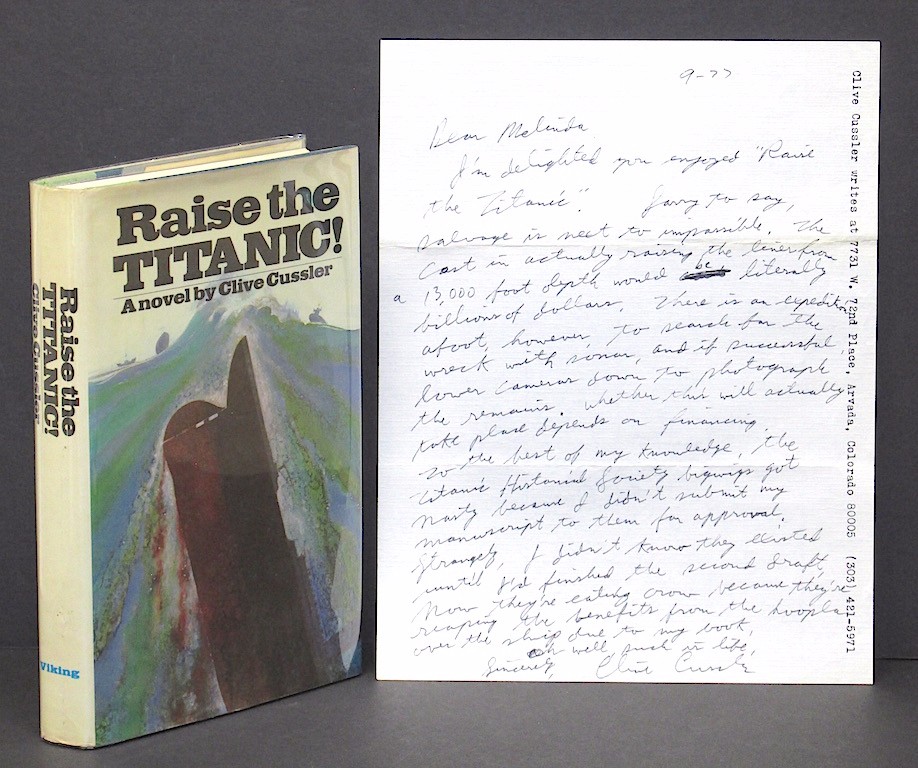 Raise the
TITANIC!
A novel by Clive Cussler
Raise the
TITANIC!
Clive Cussler
Viking
9-77
Dear Melinda
I'm delighted you enjoyed "Raise
the Titanic". Sorry to say,
salvage is next to impossible. The
cost in actually raising the liner from
a 13,000 foot depth would be literally
billions of dollars. There is an expedition
afoot, however, to search for the
wreck with sonar, and if successful,
lower cameras down to photograph
the remains. Whether this will actually
take place depends on financing.
To the best of my knowledge, the
Titanic Historical Society bigwigs got
nasty because I didn't submit my
manuscript to them for approval.
Strangely, I didn't know they existed
until I'd finished the second draft,
Now they're eating crow because they're
reaping the benefits from the hoopla
over the ship due to my book,
oh well, such is life,
Sincerely, Clive Cussler
Clive Cussler writes at 7731 W. 72nd Place, Arvada, Colorado 80005 (303) 421-5971